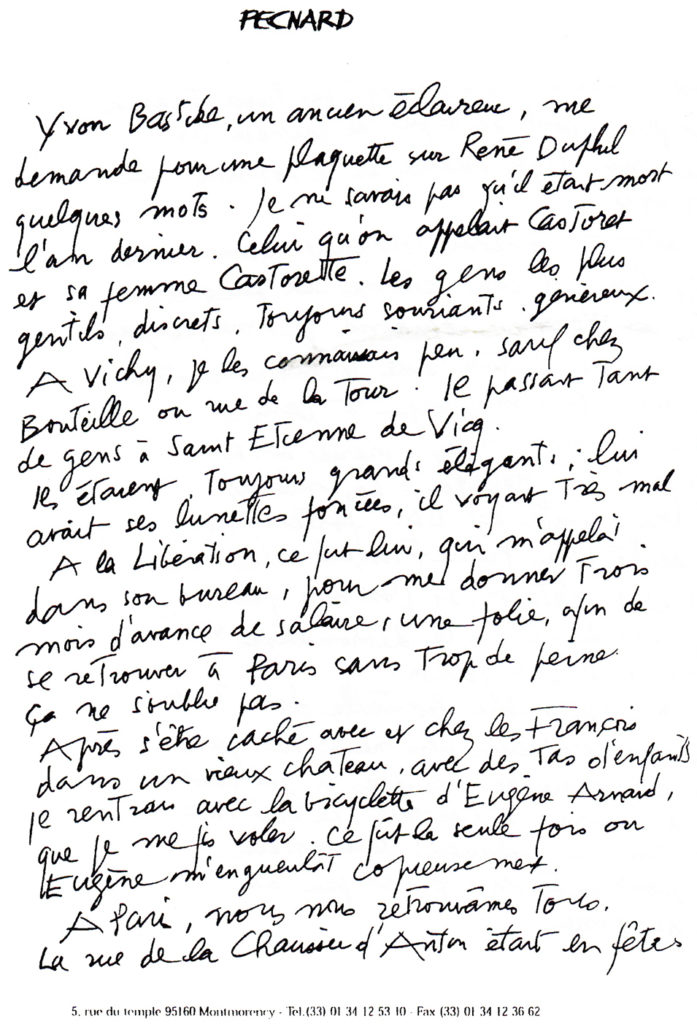 PECNARD
Yvon Bastide, un ancien éclaireur, me
demande pour une plaquette sur René Duphil
quelques mots. Je ne savais pas qu'il était mort
l'an dernier. Celui qu'on appelait Castoret
et sa femme Castorette. Les gens les plus
gentils, discrets, Toujours souriants, généreux.
A Vichy, je les connaissais peu, sauf chez
Bouteille ou rue de la Tour. Il passait Tant
de gens à Saint Etienne de Vicq.
Ils étaient Toujours grands élégants; lui
avait ses lunettes foncées, il voyait Très mal
A la Libération, ce fut lui, qui m'appela
dans son bureau, pour me donner Trois
mois d'avance de salaire, une folie, afin de
se retrouver à Paris sans Trop de peine.
Ça ne s'oublie pas.
Après s'être caché avec et chez les François
dans un vieux chateau, avec des Tas d'enfants
je rentrais avec la bicyclette d'Eugène Arnaud,
que je me fis voler. Ce fut la seule fois ou
Eugène m'engueulât copieusement.
A Paris, nous nous retrouvâmes Tous.
La rue de la Chaussée d'Antin était en fêtes
5, rue du temple 95160 Montmorency - Tel.(33) 01 34 12 53 10 - Fax (33) 01 34 12 36 62